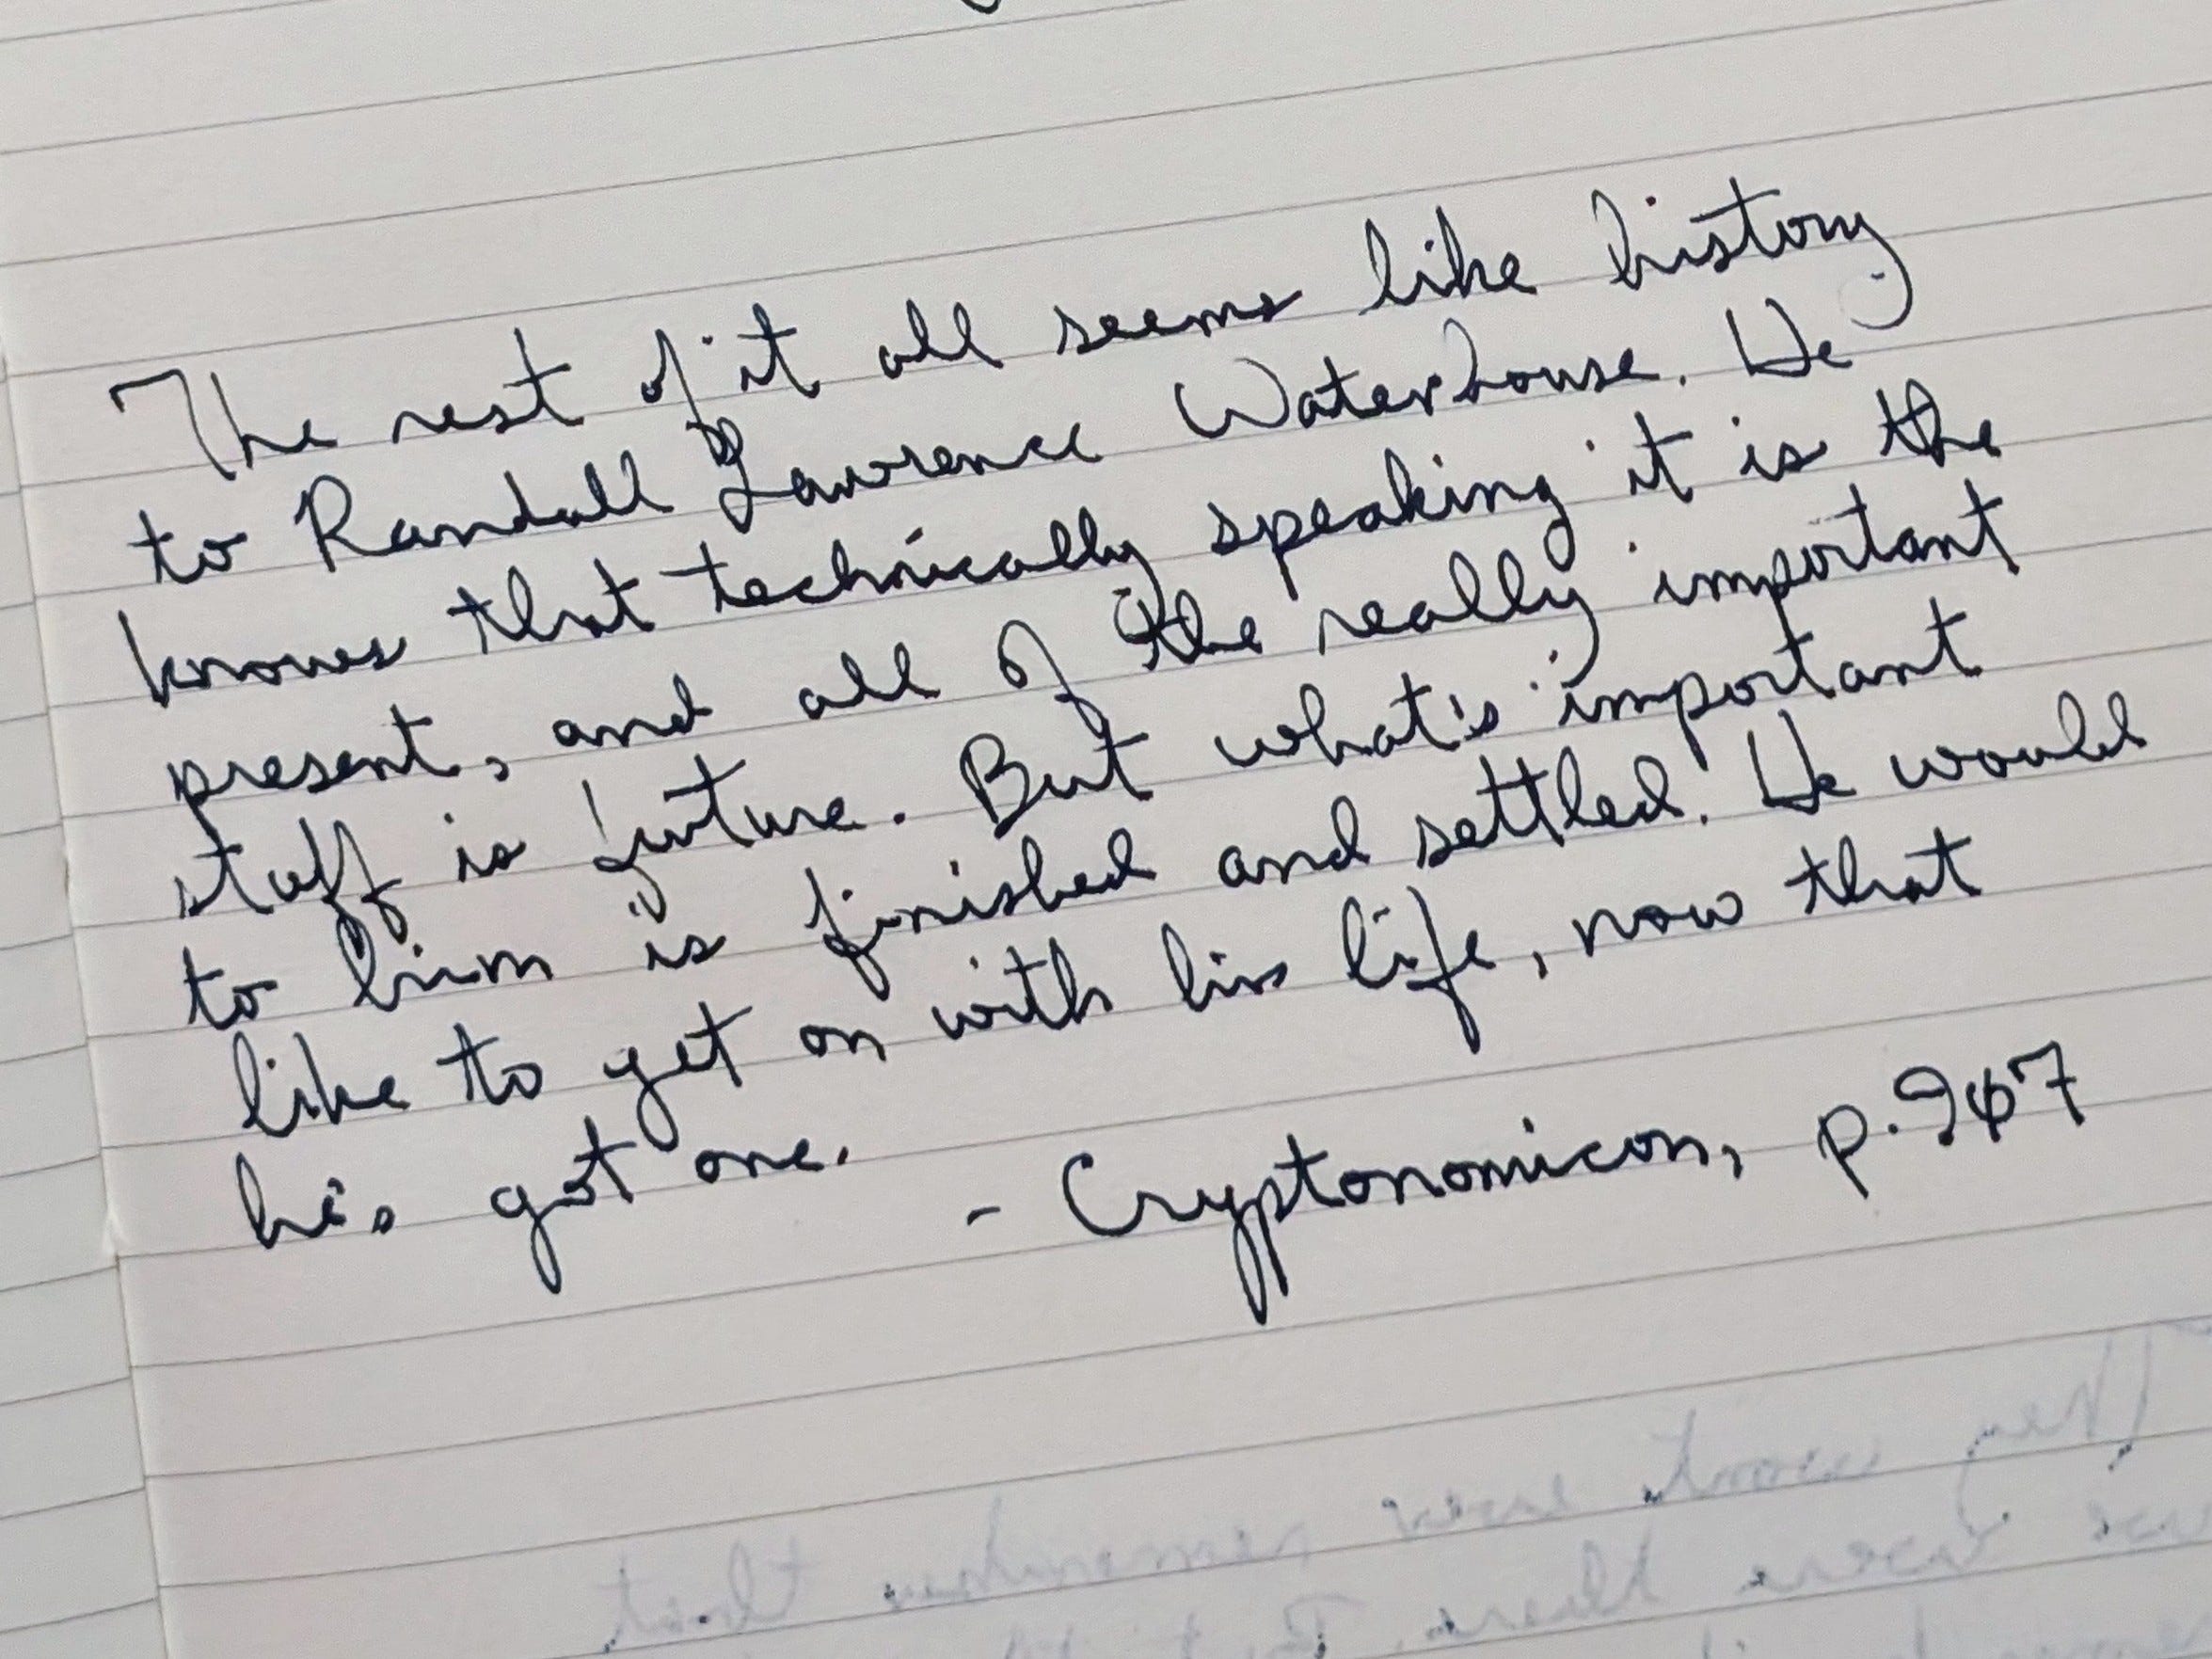 The rest of it all seems like history
to Randall Lawrence Waterhouse. He
knows that technically speaking it is the
present, and all of the really important
stuff is future. But what's important
to him is finished and settled. He would
like to get on with his life, now that
he's got one.
- Cryptonomicon, p.907
They wont even remember that
were there.